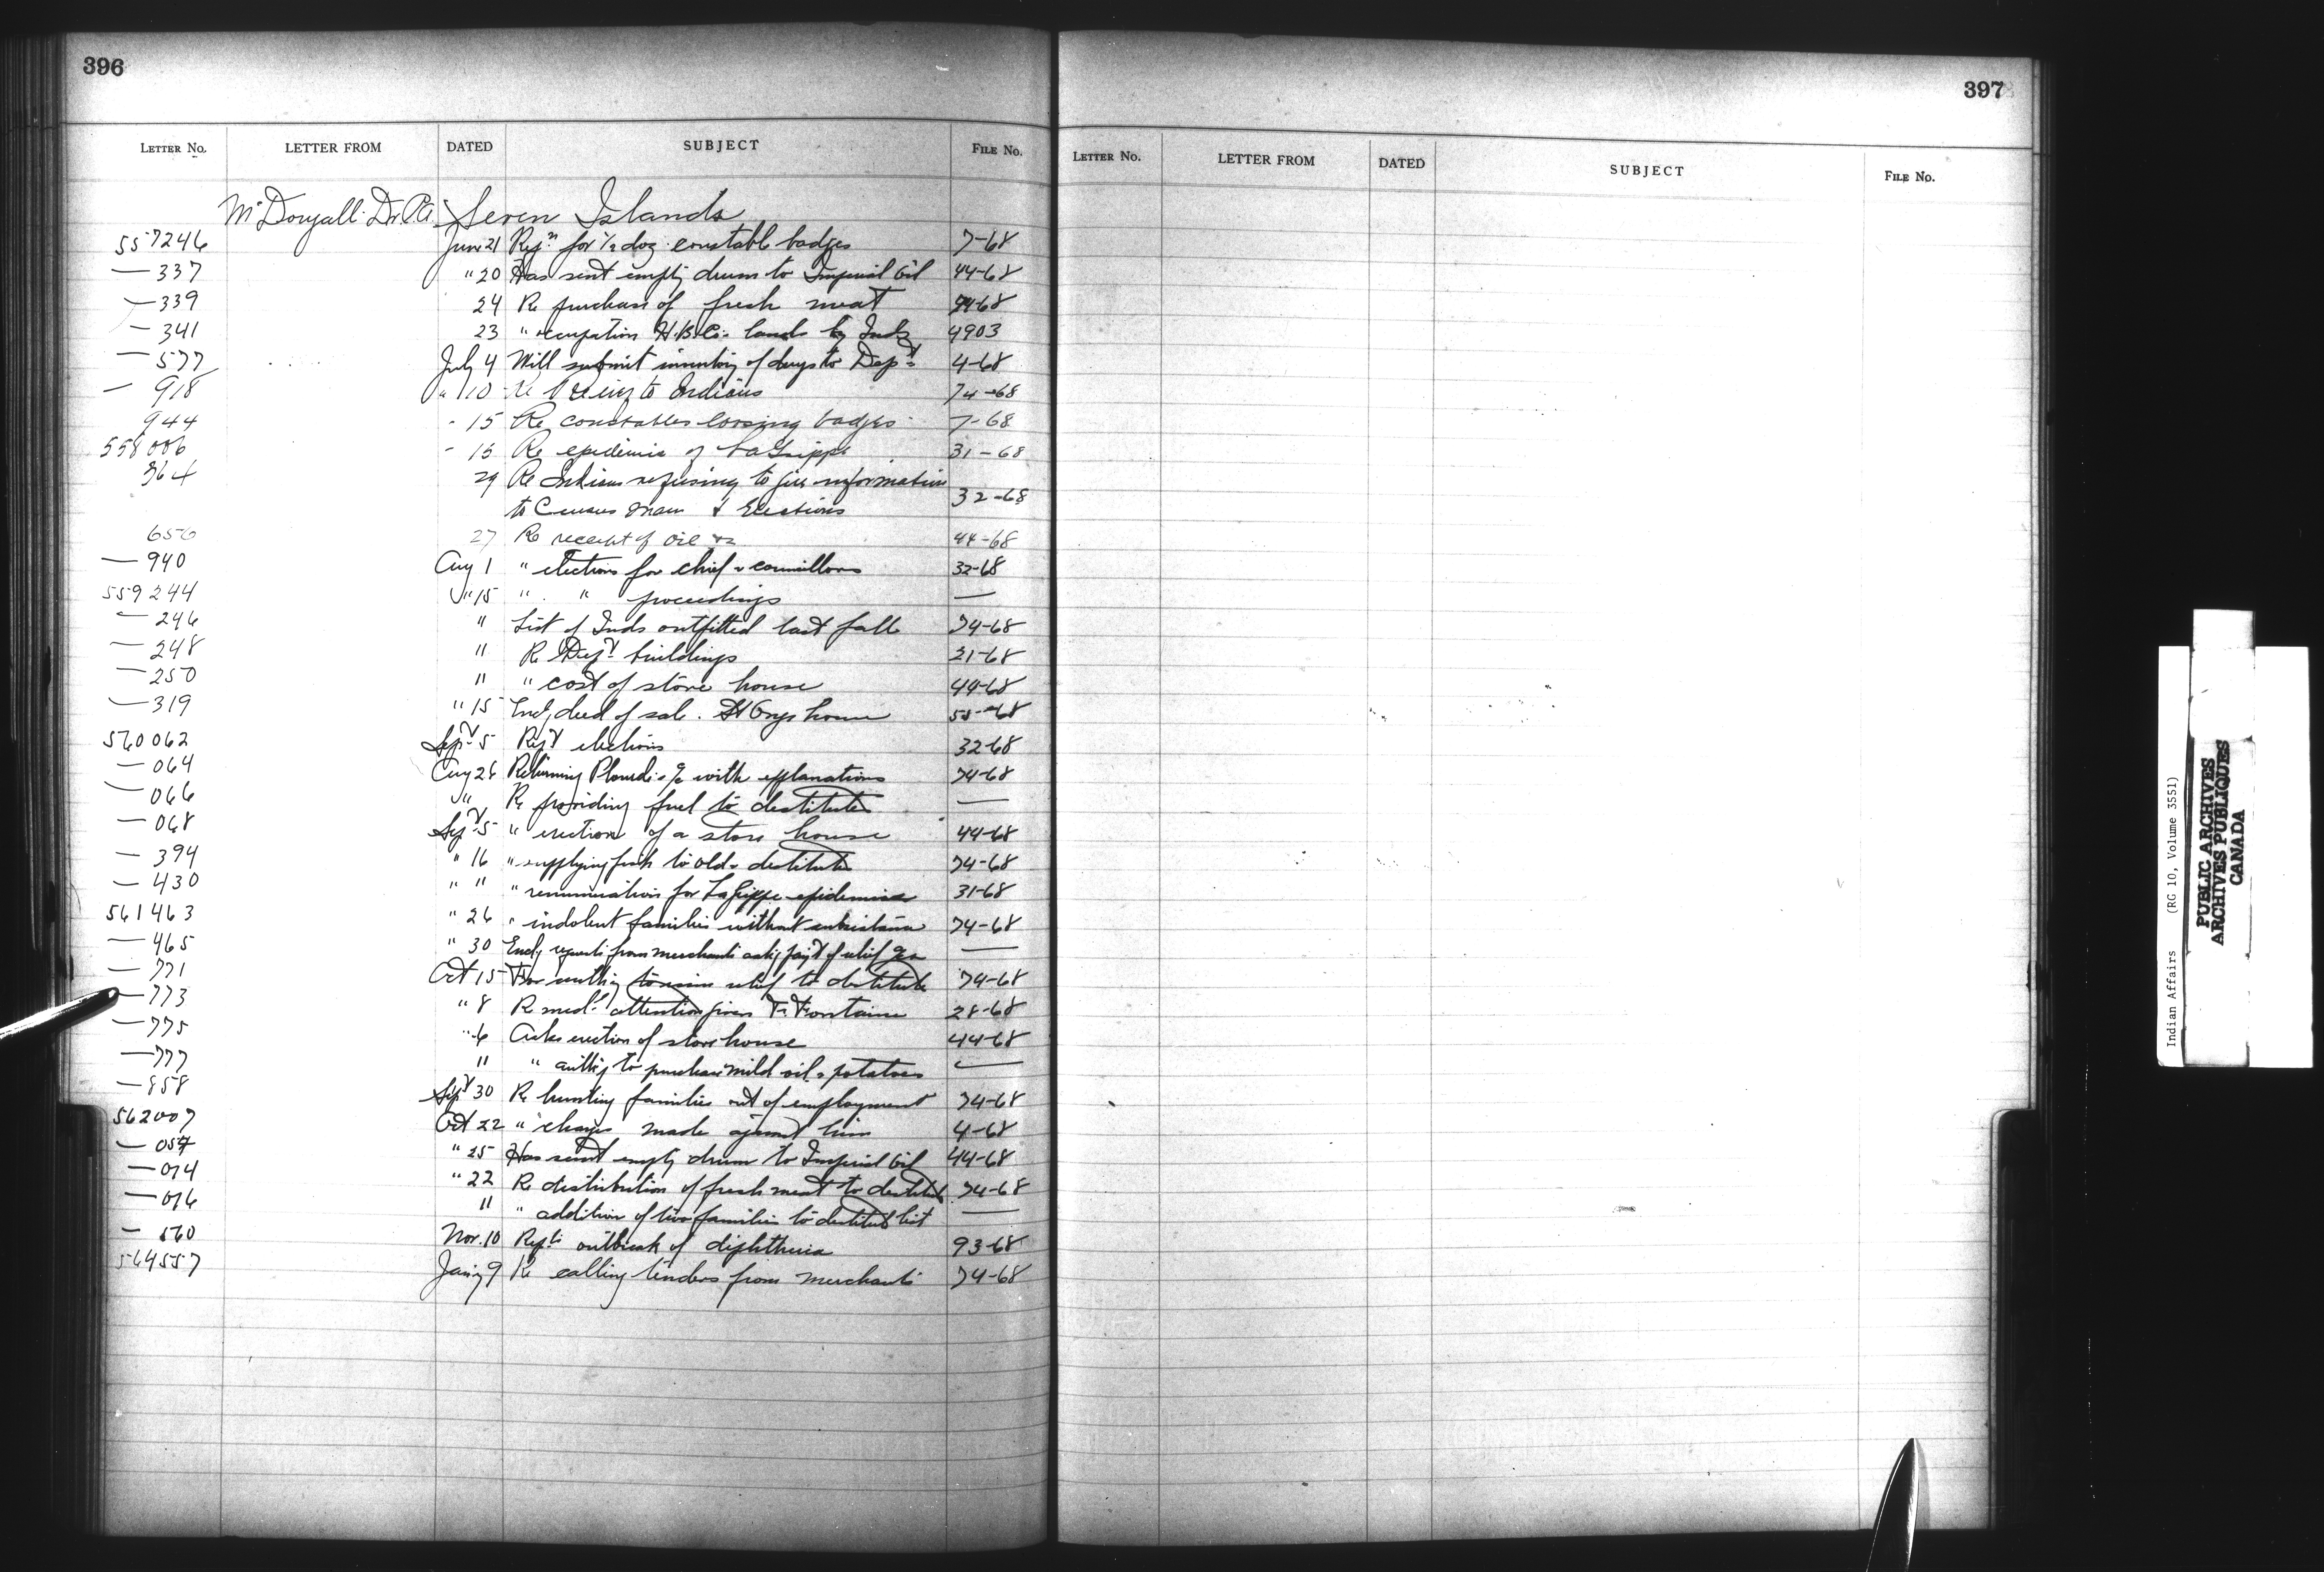 396
LETTER No. LETTER FROM DATED SUBJECT FILE No.
McDougall Dr. Seven Islands
557246 June 21 Reqn for 1/2 doz constable badges 7-68
— 337 " 20 Has sent empty drum to Imperial Oil 44-68
— 339 24 Re purchase of fresh meat 74-68
— 341 23 " occupation H.B.Co. lands by Inds 4903
— 577 July 4 Will submit inventory of drugs to Dept 4-68
— 918 " 10 Re to Indians 74-68
944 " 15 Re constables loosing badges 7-68
558006 " 15 Re epidemic of La Grippe 31-68
364 29 Re Indians refusing to give information
to Census man & Elections 32-68
656 27 Re receipt of oil &c 44-68
— 940 Aug 1 " elections for chief & councillors 32-68
559244 " 15 " " proceedings —
— 246 " List of Inds outfitted last fall 74-68
— 248 " Re Dept buildings 21-68
— 250 " " cost of store house 44-68
— 319 " 15 Encl deed of sale. house 55-68
560062 Sept 5 elections 32-68
— 064 Aug 28 Returning a/c with explanations 74-68
— 066 " Re providing fuel to destitutes —
— 068 Sept 5 " erection of a store house 44-68
— 394 " 16 " supplying to old & destitute 74-68
— 430 " " " remuneration for La Grippe epidemic 31-68
561463 " 26 " indolent families without subsistance 74-68
— 465 " 30 Encl requests from merchants askg payt of relief —
— 771 Oct 15 For authy to issue relief to destitute 74-68
— 773 " 8 Re medl attention given F. Fontaine 28-68
— 775 " 6 Asks erection of store house 44-68
— 777 " " authy to purchase oil & potatoes —
— 858 Sept 30 Re hunting families out of employment 74-68
562007 Oct 22 " charges made against him 4-68
— 057 " 25 Has sent empty drum to Imperial Oil 44-68
— 074 " 22 Re distribution of fresh meat to destitute 74-68
— 076 " " addition of two families to destitute list —
— 560 Nov. 10 Repts outbreak of diphtheria 93-68
564557 Jany 9 Re calling tenders from merchants 74-68
397
LETTER No. LETTER FROM DATED SUBJECT FILE No.
Indian Affairs (RG 10, Volume 3551)
PUBLIC ARCHIVES
ARCHIVES PUBLIQUES
CANADA